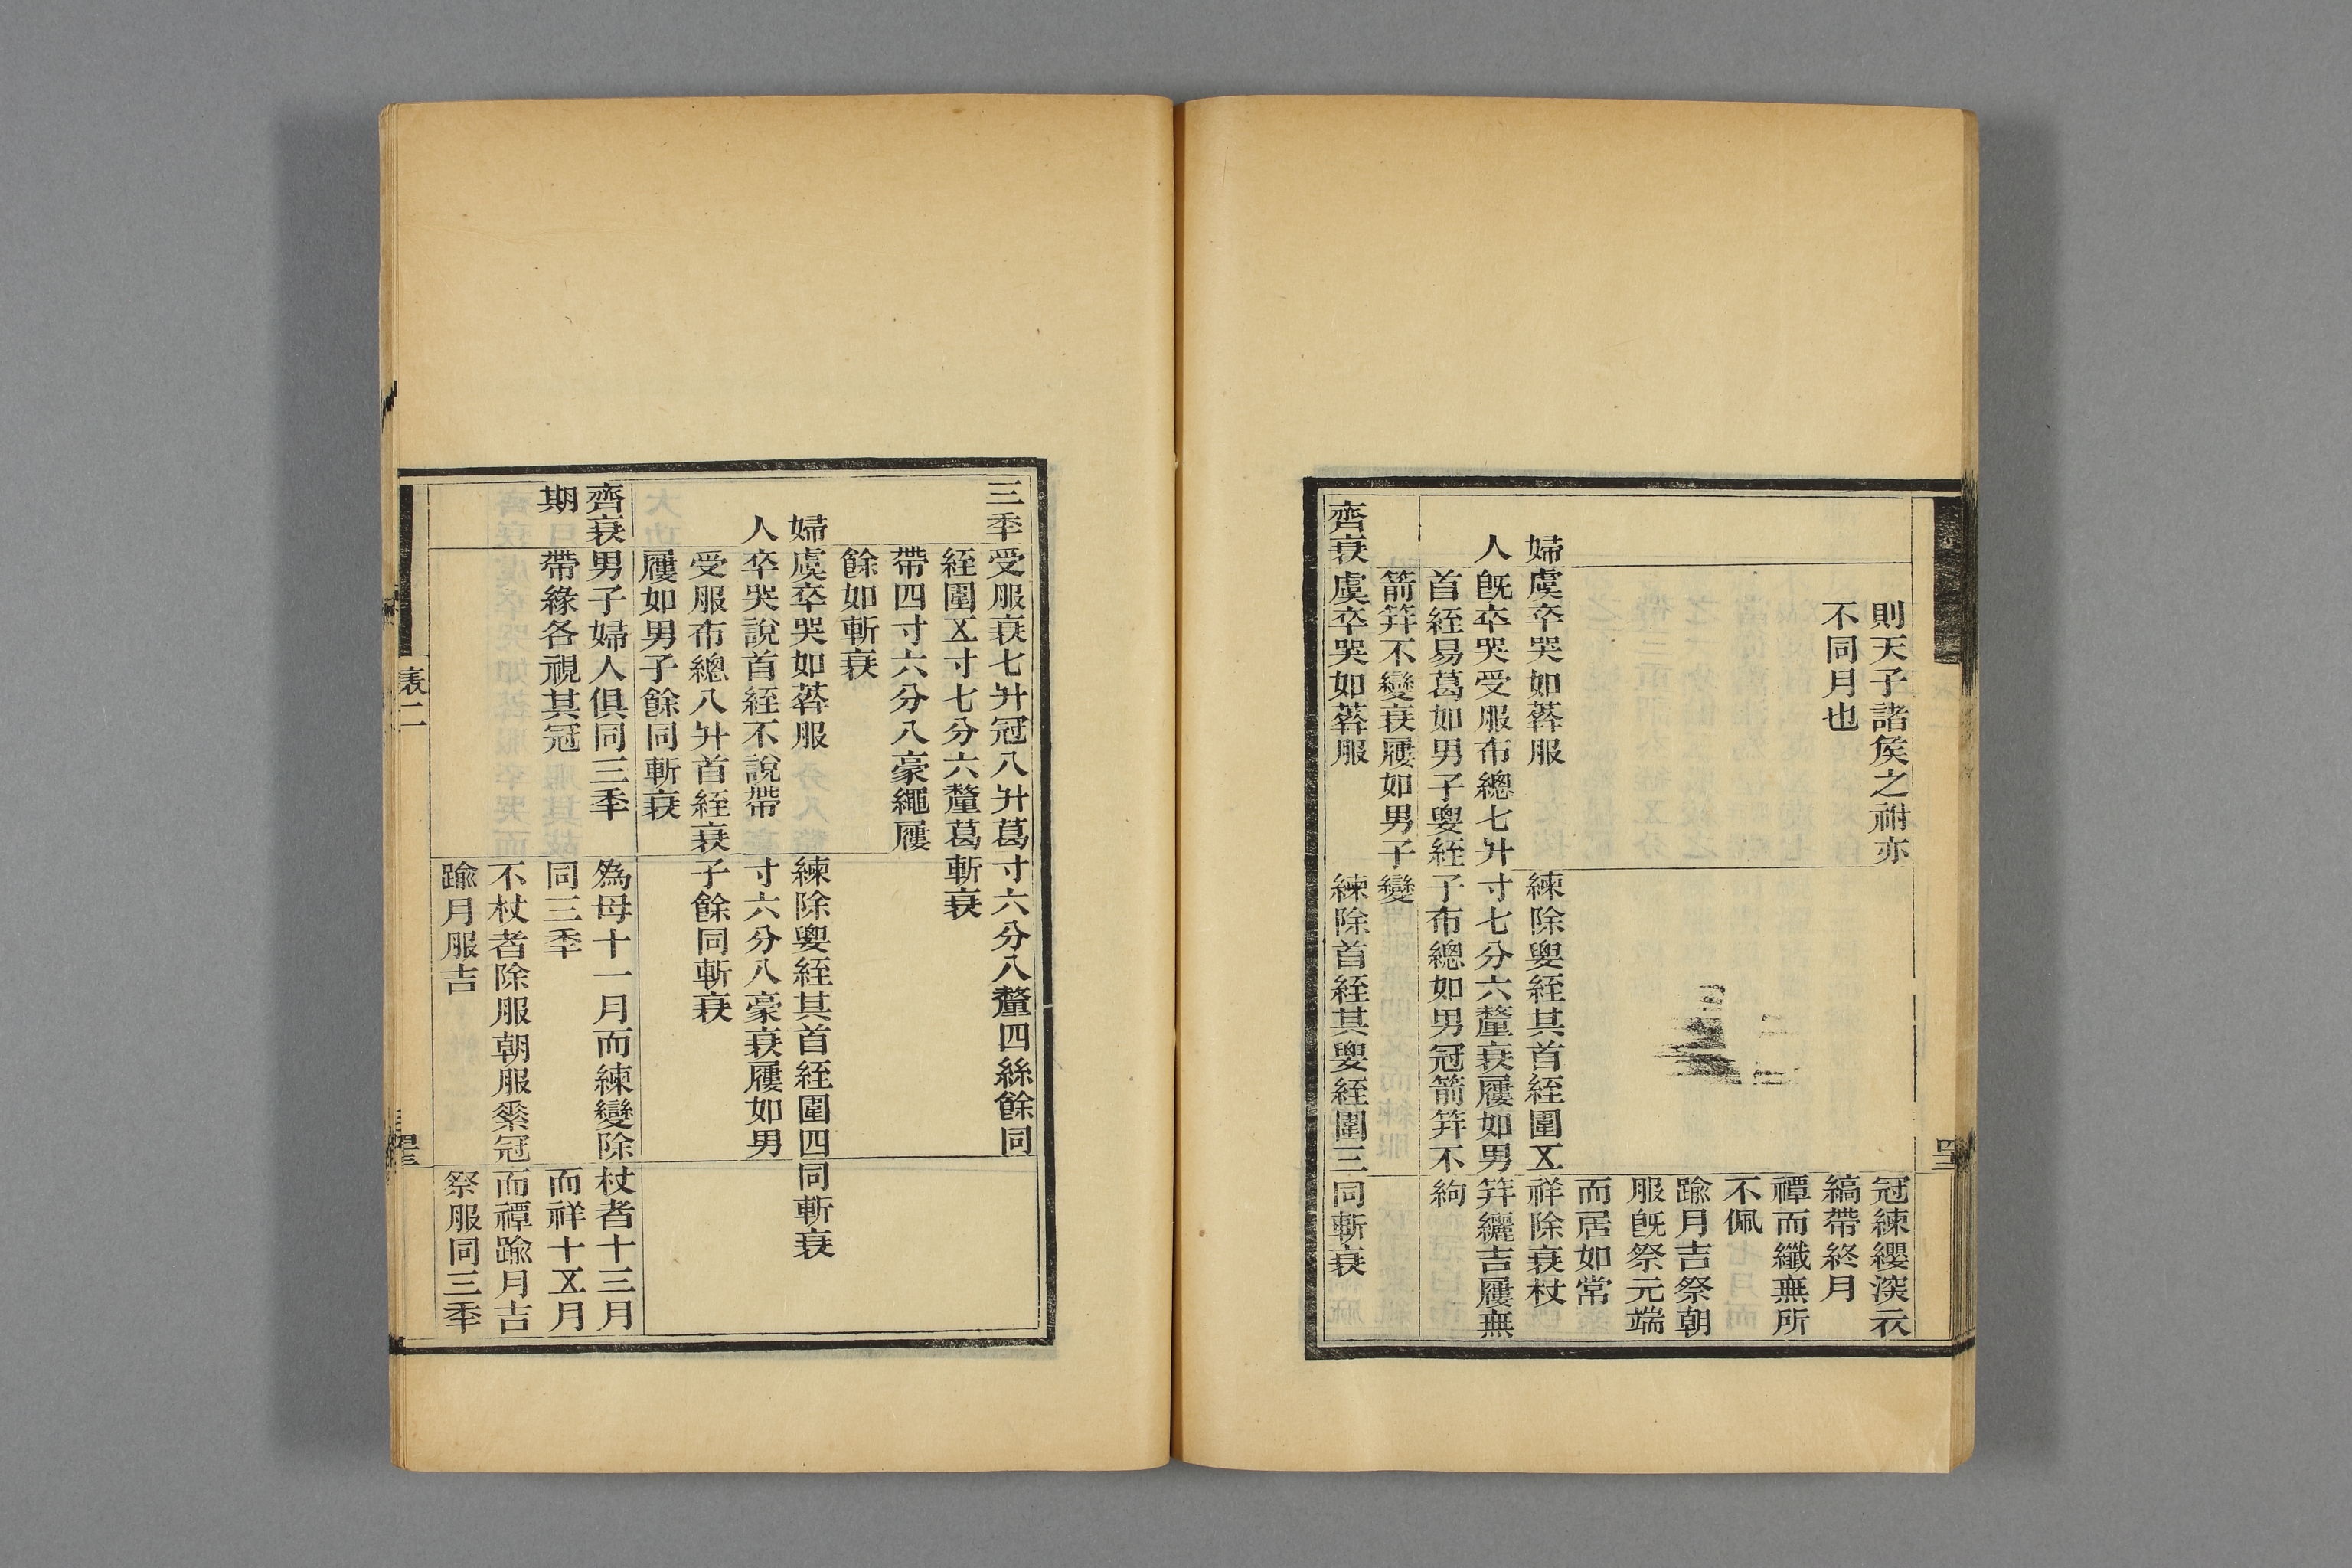 則天子諸矦之祔亦
不同月也
冠練纓深衣
縞帶終月
禫而纖無所
不佩
踰月吉祭朝
服旣祭元端
而居如常
婦
人
虞卒哭如葬服
旣卒哭受服布總七升
首絰易葛如男子要絰
箭笄不變衰屨如男子
練除要絰其首絰圍五
寸七分六釐衰屨如男
子布總如男冠箭笄不
變
祥除衰杖
笄纚吉屨無
絇
齊衰
虞卒哭如葬服
練除首絰其要絰圍三
同斬衰
三年
受服衰七升冠八升葛
絰圍五寸七分六釐葛
帶四寸六分八豪繩屨
餘如斬衰
寸六分八釐四絲餘同
斬衰
婦
人
虞卒哭如葬服
卒哭說首絰不說帶
受服布總八升首絰衰
屨如男子餘同斬衰
練除要絰其首絰圍四
寸六分八豪衰屨如男
子餘同斬衰
同斬衰
齊衰
期
男子婦人俱同三年
帶緣各視其冠
爲母十一月而練變除
同三年
不杖者除服朝服素冠
踰月服吉
杖者十三月
而祥十五月
而禫踰月吉
祭服同三年
表二